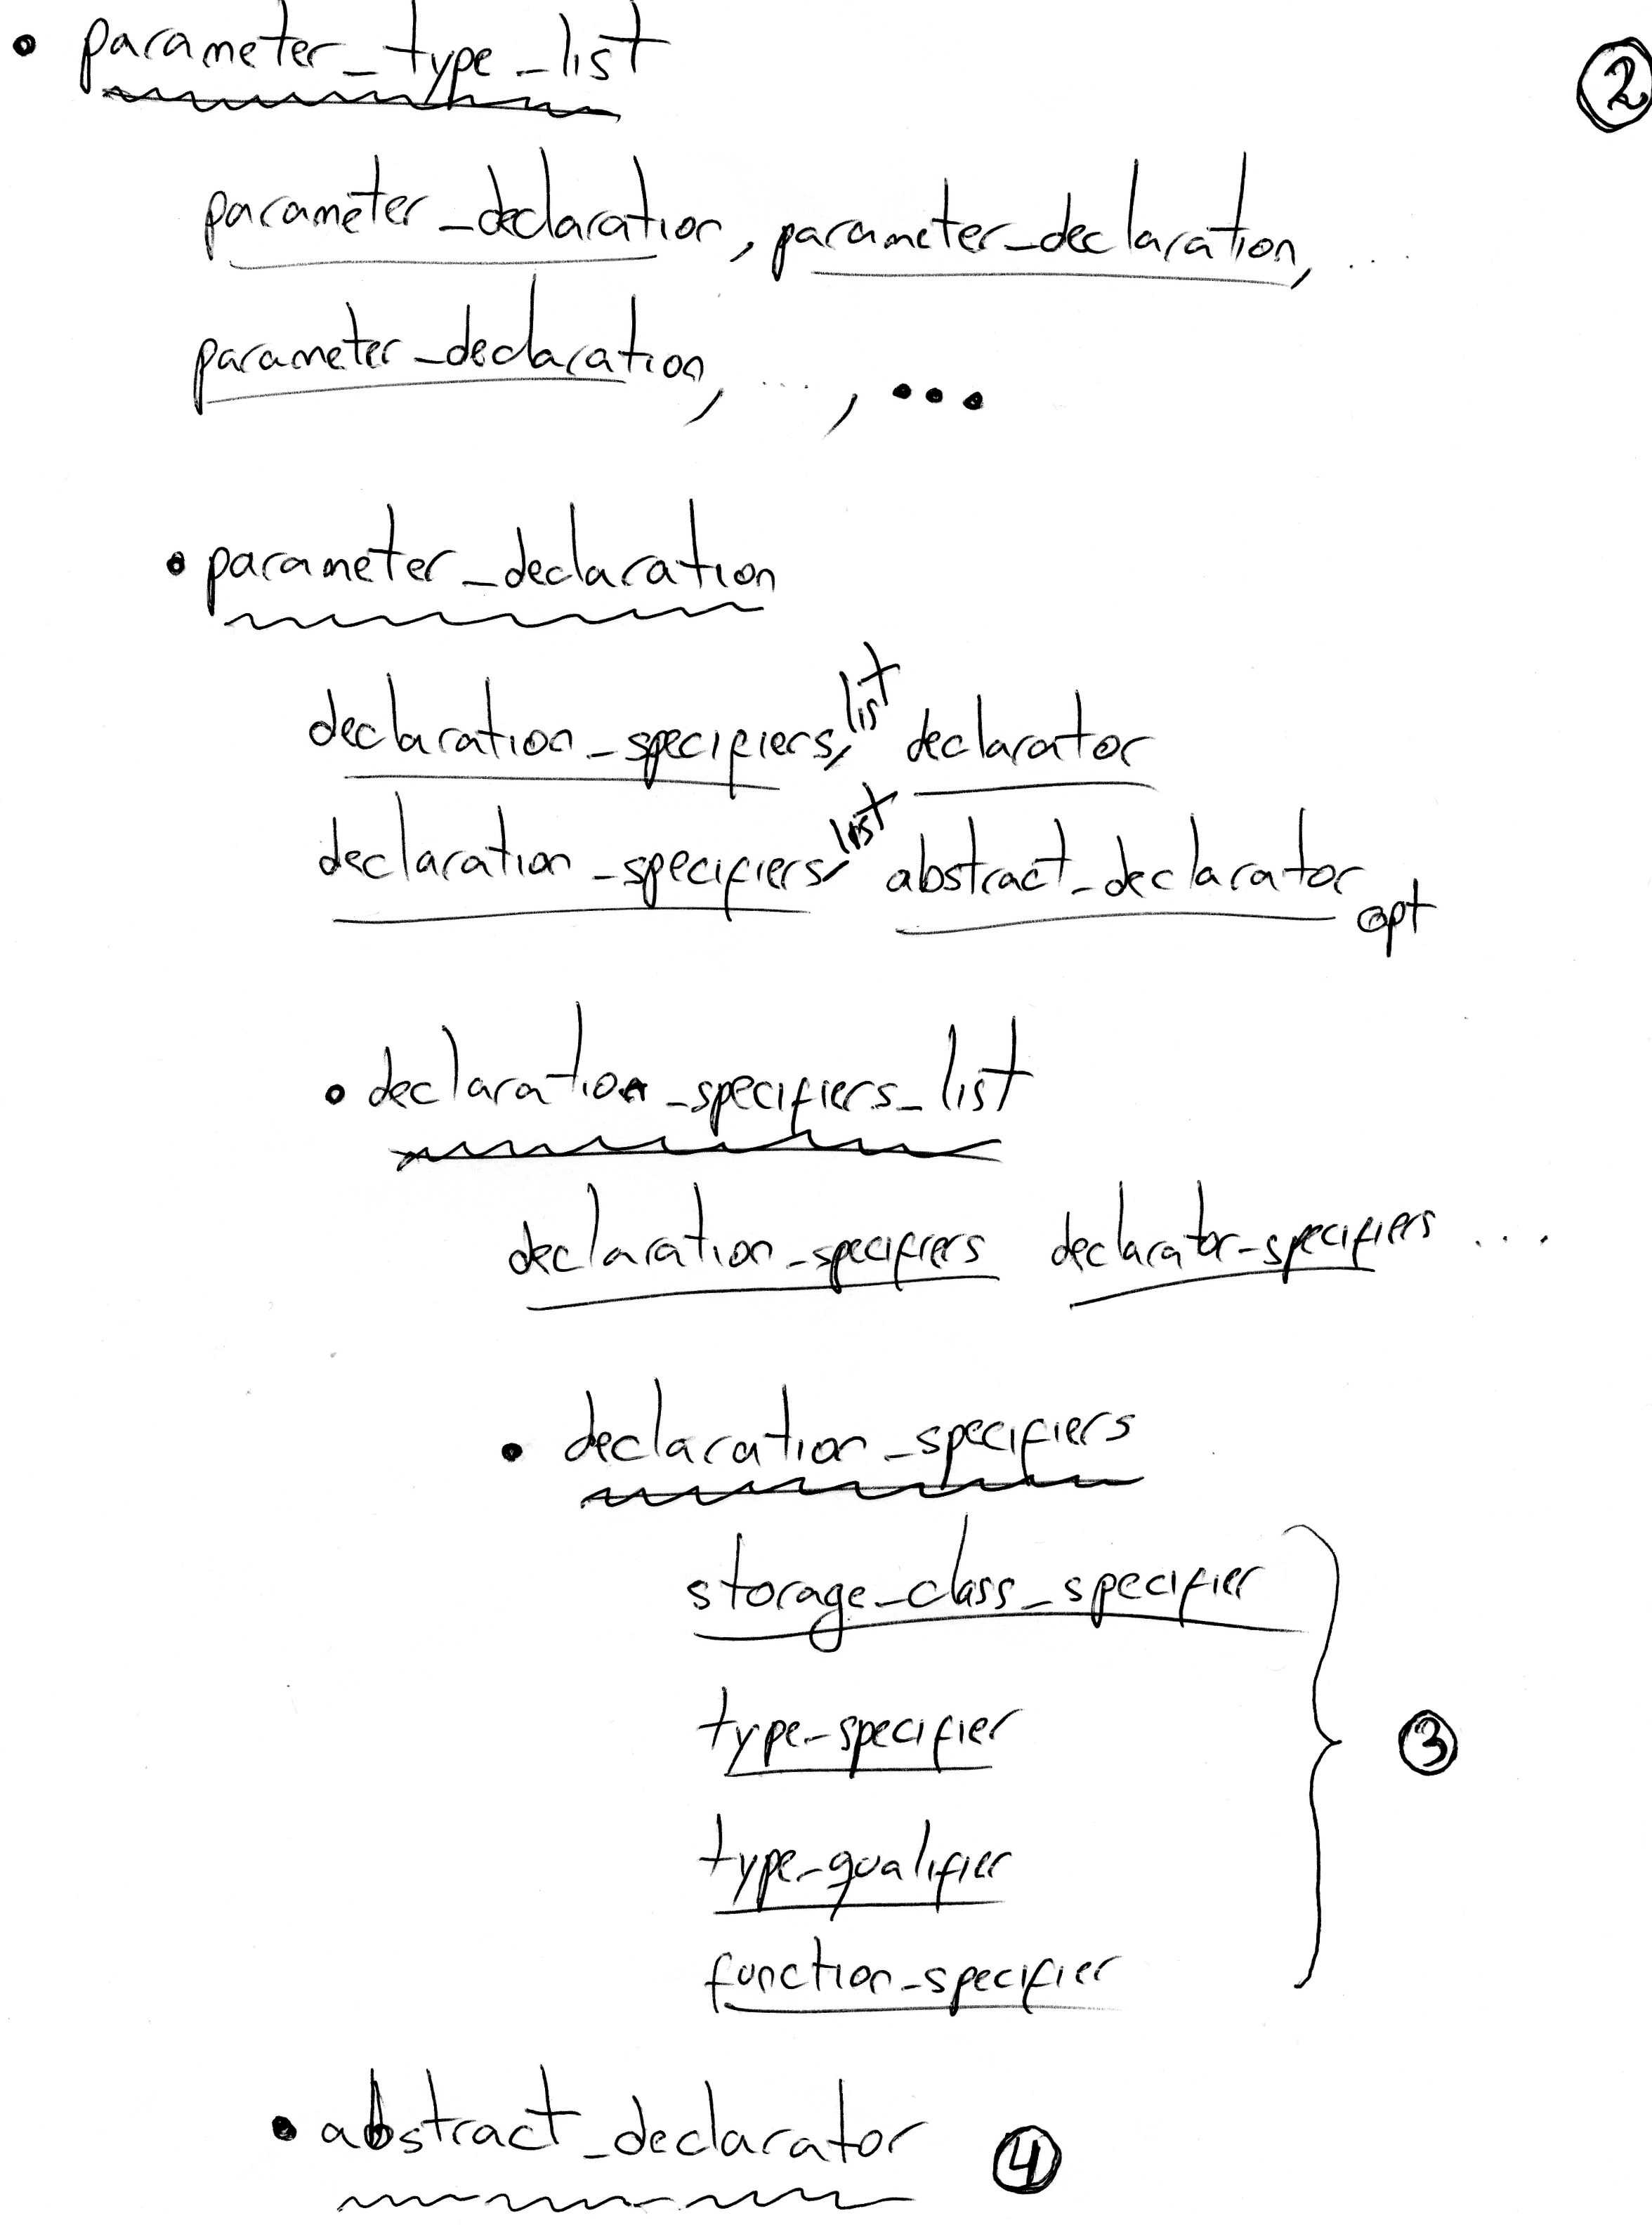 • parameter_type_list
②
parameter_declaration, parameter_declaration, ...
parameter_declaration, ..., •••
• parameter_declaration
declaration_specifiers, list declarator
declaration_specifiers, list abstract_declarator opt
• declaration_specifiers_list
declaration_specifiers declarator-specifiers ...
• declaration_specifiers
storage_class_specifier
type-specifier
③
type-qualifier
function-specifier
• abstract_declarator ④